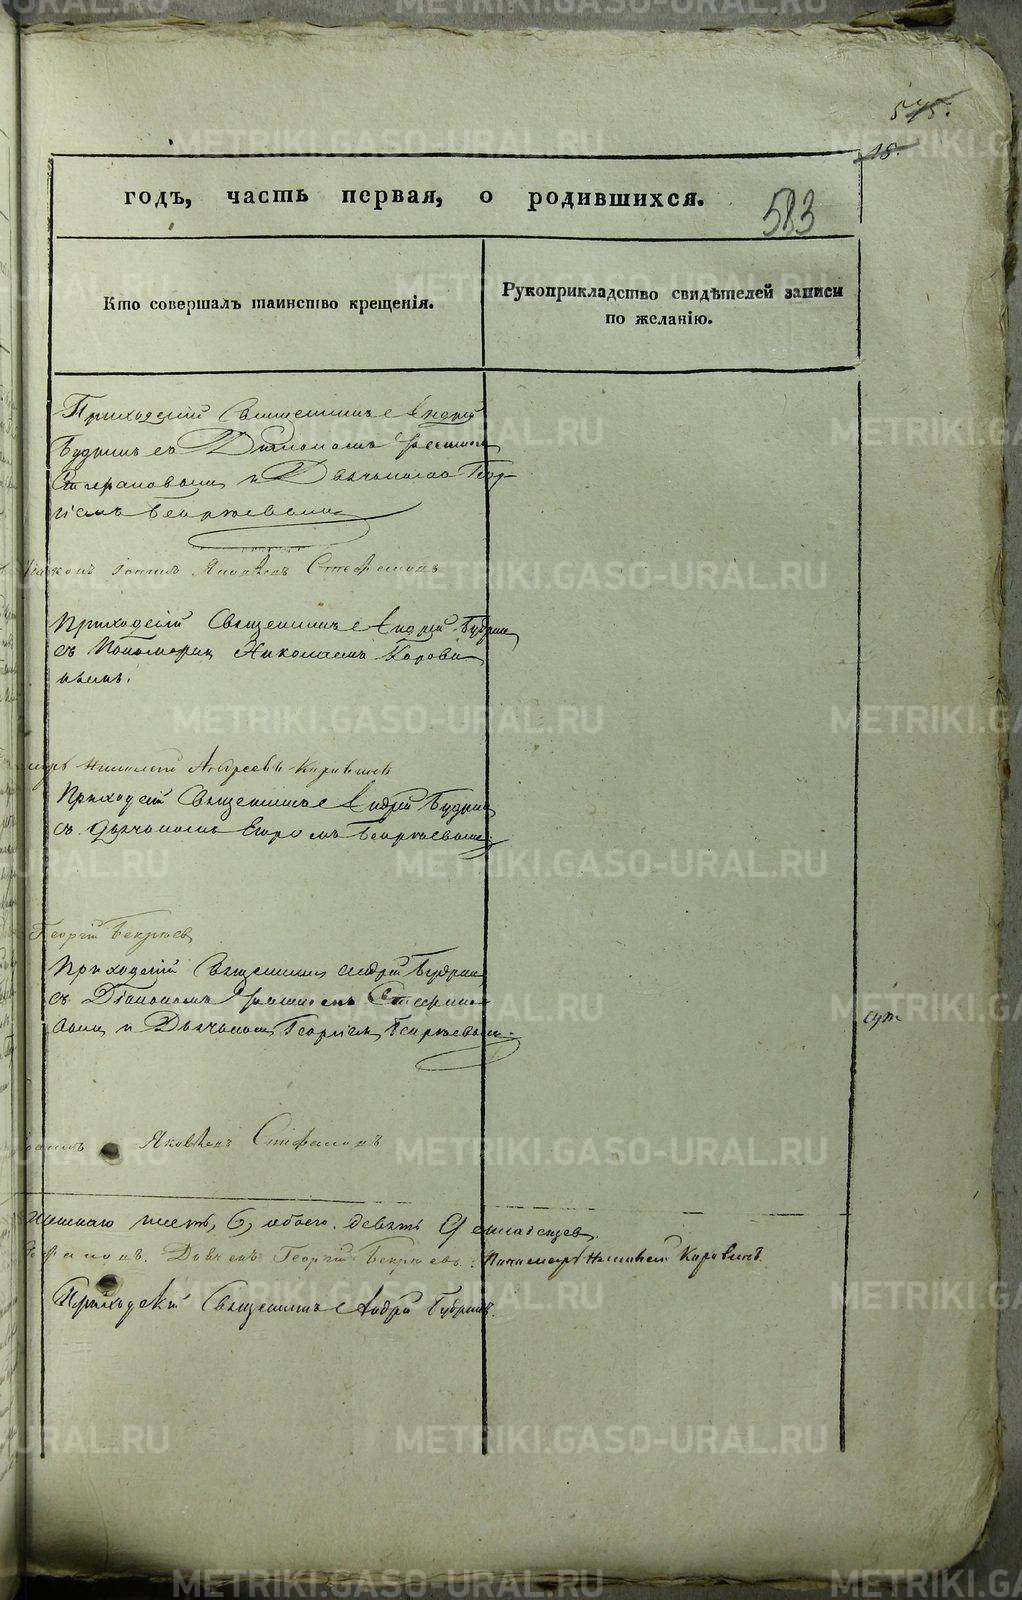 575.
18.
годъ, часть первая, о родившихся.
583
Кто совершалъ таинство крещенія.
Рукоприкладство свидѣтелей записи
по желанію.
Приходскій Священникъ Андрей
Будринъ съ Діакономъ
Стефановымъ и Дьячкомъ Геор-
гіемъ Бекряевымъ
Іоаннъ Яковлевъ Стефановъ
Приходскій Священникъ Андрей Будринъ
съ Пономаремъ Николаемъ Корови
нымъ.
Николай Андреевъ Коровинъ
Приходскій Священникъ Андрей Будринъ
съ Дьячкомъ Егоромъ Бекряевымъ
Георгій Бекряевъ
Приходскій Священникъ Андрей Будринъ
съ Діакономъ Стефано-
вымъ и Дьячкомъ Георгіемъ Бекряевымъ
сут
Яковлевъ Стефановъ
шесть, 6, обоего девять 9 младенцев.
Георгій Бекряевъ. Пономарь Николай Коровинъ.
Приходскій Священникъ Андрей Будринъ.
METRIKI.GASO-URAL.RU